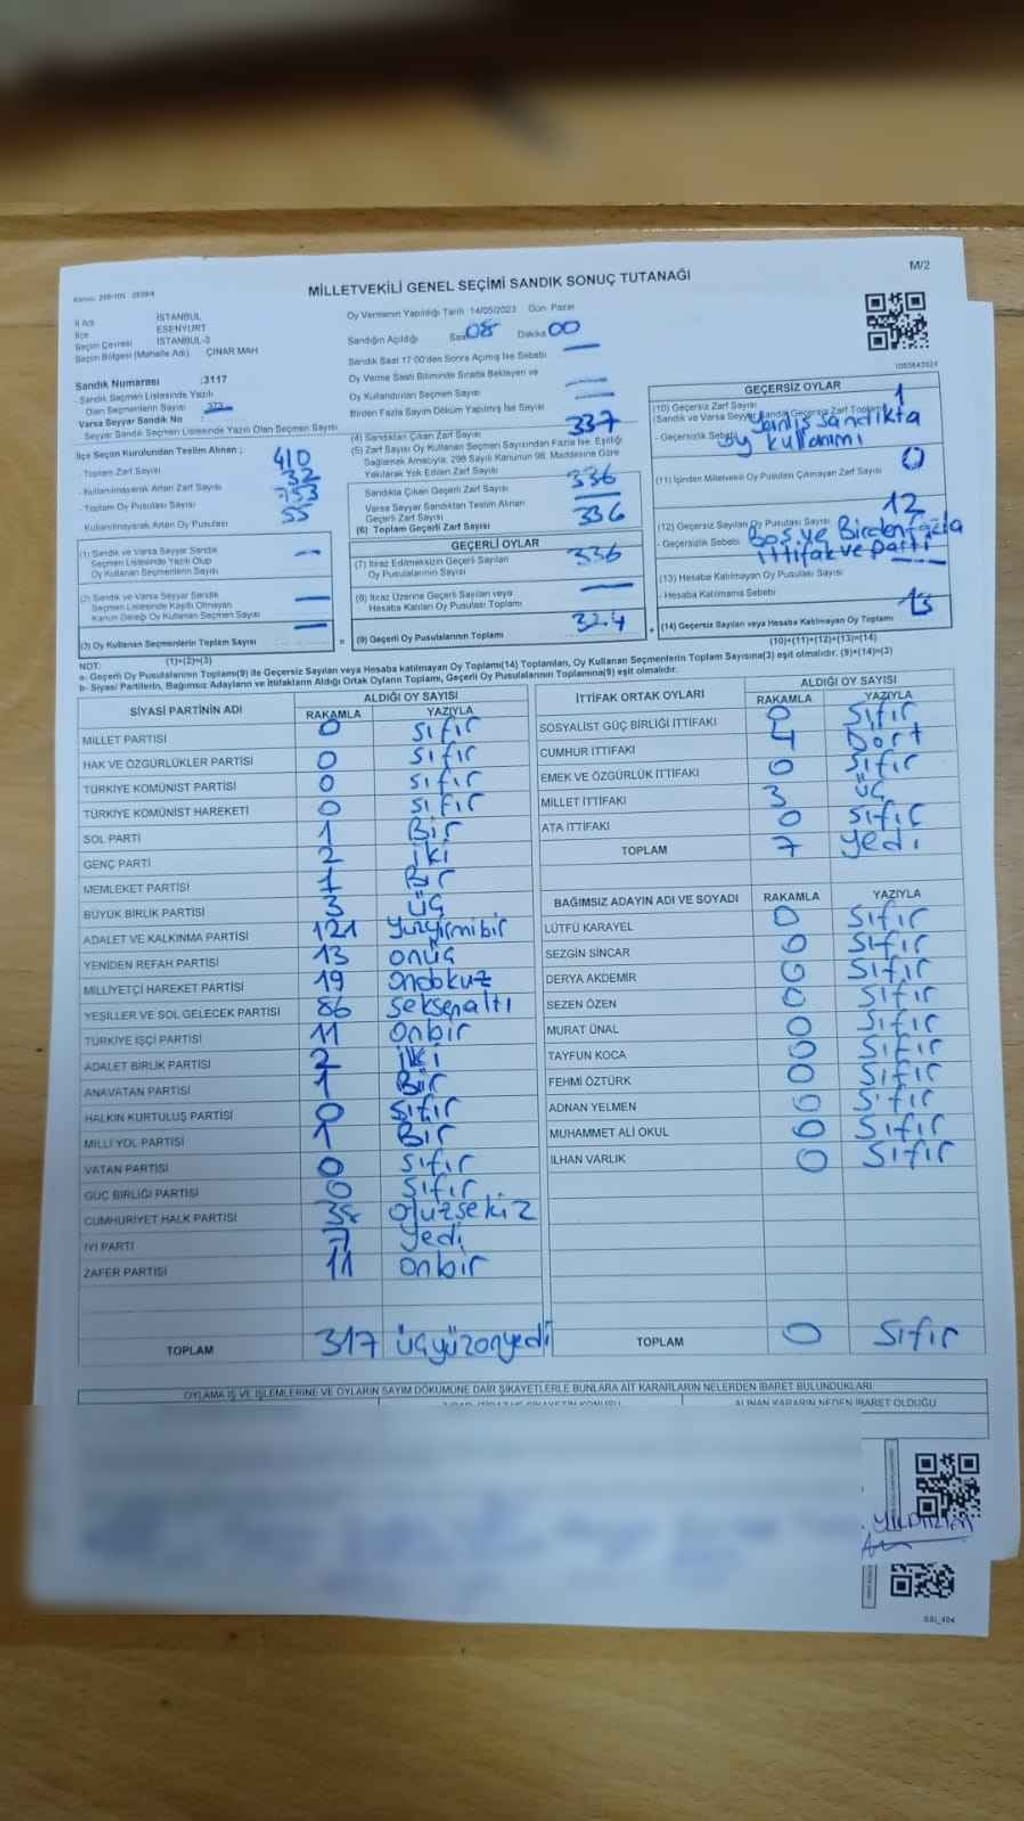 M/2
MİLLETVEKİLİ GENEL SEÇİMİ SANDIK SONUÇ TUTANAĞI
İl Adı İSTANBUL
İlçe ESENYURT
Seçim Çevresi İSTANBUL-3
Seçim Bölgesi (Mahalle Adı) ÇINAR MAH
Sandık Numarası :3117
Sandık Seçmen Listesinde Yazılı
Olan Seçmenlerin Sayısı
Varsa Seyyar Sandık No :
Seyyar Sandık Seçmen Listesinde Yazılı Olan Seçmen Sayısı
İlçe Seçim Kurulundan Teslim Alınan ;
Toplam Zarf Sayısı 410
Kullanılmayarak Artan Zarf Sayısı 32
Toplam Oy Pusulası Sayısı
Kullanılmayarak Artan Oy Pusulası 55
(1) Sandık ve Varsa Seyyar Sandık
Seçmen Listesinde Yazılı Olup
Oy Kullanan Seçmenlerin Sayısı —
(2) Sandık ve Varsa Seyyar Sandık
Seçmen Listesinde Kayıtlı Olmayan
Kanun Gereği Oy Kullanan Seçmen Sayısı —
(3) Oy Kullanan Seçmenlerin Toplam Sayısı —
(1)+(2)=(3)
Oy Vermenin Yapıldığı Tarih :14/05/2023 Gün: Pazar
Sandığın Açıldığı Saat 08 Dakika 00
Sandık Saat 17:00'den Sonra Açılmış İse Sebebi —
Oy Verme Saati Bitiminde Sırada Bekleyen ve
Oy Kullandırılan Seçmen Sayısı —
Birden Fazla Sayım Döküm Yapılmış İse Sayısı —
(4) Sandıktan Çıkan Zarf Sayısı 337
(5) Zarf Sayısı Oy Kullanan Seçmen Sayısından Fazla İse, Eşitliği
Sağlamak Amacıyla, 298 Sayılı Kanunun 98. Maddesine Göre
Yakılarak Yok Edilen Zarf Sayısı
Sandıkta Çıkan Geçerli Zarf Sayısı 336
Varsa Seyyar Sandıktan Teslim Alınan
Geçerli Zarf Sayısı —
(6) Toplam Geçerli Zarf Sayısı 336
GEÇERLİ OYLAR
(7) İtiraz Edilmeksizin Geçerli Sayılan
Oy Pusulalarının Sayısı 336
(8) İtiraz Üzerine Geçerli Sayılan veya
Hesaba Katılan Oy Pusulası Toplamı —
= (9) Geçerli Oy Pusulalarının Toplamı 324
GEÇERSİZ OYLAR
(10) Geçersiz Zarf Sayısı 1
(Sandık ve Varsa Seyyar Sandık Geçersiz Zarf Toplamı)
- Geçersizlik Sebebi Yanlış sandıkta
oy kullanımı
(11) İçinden Milletvekili Oy Pusulası Çıkmayan Zarf Sayısı 0
(12) Geçersiz Sayılan Oy Pusulası Sayısı 12
- Geçersizlik Sebebi Boş ve Birden fazla
ittifak ve parti
(13) Hesaba Katılmayan Oy Pusulası Sayısı —
- Hesaba Katılmama Sebebi
+ (14) Geçersiz Sayılan veya Hesaba Katılmayan Oy Toplamı
(10)+(11)+(12)+(13)=(14)
NOT:
a- Geçerli Oy Pusulalarının Toplamı(9) ile Geçersiz Sayılan veya Hesaba katılmayan Oy Toplamı(14) Toplamları, Oy Kullanan Seçmenlerin Toplam Sayısına(3) eşit olmalıdır. (9)+(14)=(3)
b- Siyasi Partilerin, Bağımsız Adayların ve İttifakların Aldığı Ortak Oyların Toplamı, Geçerli Oy Pusulalarının Toplamına(9) eşit olmalıdır.
SİYASİ PARTİNİN ADI ALDIĞI OY SAYISI
RAKAMLA YAZIYLA
MİLLET PARTİSİ 0 sıfır
HAK VE ÖZGÜRLÜKLER PARTİSİ 0 sıfır
TÜRKİYE KOMÜNİST PARTİSİ 0 sıfır
TÜRKİYE KOMÜNİST HAREKETİ 0 sıfır
SOL PARTİ 1 Bir
GENÇ PARTİ 2 iki
MEMLEKET PARTİSİ 1 Bir
BÜYÜK BİRLİK PARTİSİ 3 üç
ADALET VE KALKINMA PARTİSİ 121 yüzyirmibir
YENİDEN REFAH PARTİSİ 13 onüç
MİLLİYETÇİ HAREKET PARTİSİ 19 ondokuz
YEŞİLLER VE SOL GELECEK PARTİSİ 86 seksenaltı
TÜRKİYE İŞÇİ PARTİSİ 11 onbir
ADALET BİRLİK PARTİSİ 2 iki
ANAVATAN PARTİSİ 1 Bir
HALKIN KURTULUŞ PARTİSİ 0 sıfır
MİLLİ YOL PARTİSİ 1 Bir
VATAN PARTİSİ 0 sıfır
GÜÇ BİRLİĞİ PARTİSİ 0 sıfır
CUMHURİYET HALK PARTİSİ 38 otuzsekiz
İYİ PARTİ 7 yedi
ZAFER PARTİSİ 11 onbir
TOPLAM 317 üçyüzonyedi
İTTİFAK ORTAK OYLARI ALDIĞI OY SAYISI
RAKAMLA YAZIYLA
SOSYALİST GÜÇ BİRLİĞİ İTTİFAKI 0 sıfır
CUMHUR İTTİFAKI 4 Dört
EMEK VE ÖZGÜRLÜK İTTİFAKI 0 sıfır
MİLLET İTTİFAKI 3 üç
ATA İTTİFAKI 0 sıfır
TOPLAM 7 yedi
BAĞIMSIZ ADAYIN ADI VE SOYADI RAKAMLA YAZIYLA
LÜTFÜ KARAYEL 0 sıfır
SEZGİN SİNCAR 0 sıfır
DERYA AKDEMİR 0 sıfır
SEZEN ÖZEN 0 sıfır
MURAT ÜNAL 0 sıfır
TAYFUN KOCA 0 sıfır
FEHMİ ÖZTÜRK 0 sıfır
ADNAN YELMEN 0 sıfır
MUHAMMET ALİ OKUL 0 sıfır
İLHAN VARLIK 0 sıfır
TOPLAM 0 sıfır
OYLAMA İŞ VE İŞLEMLERİNE VE OYLARIN SAYIM DÖKÜMÜNE DAİR ŞİKAYETLERLE BUNLARA AİT KARARLARIN NELERDEN İBARET BULUNDUKLARI
ALINAN KARARIN NEDEN İBARET OLDUĞU
YILDIRIM